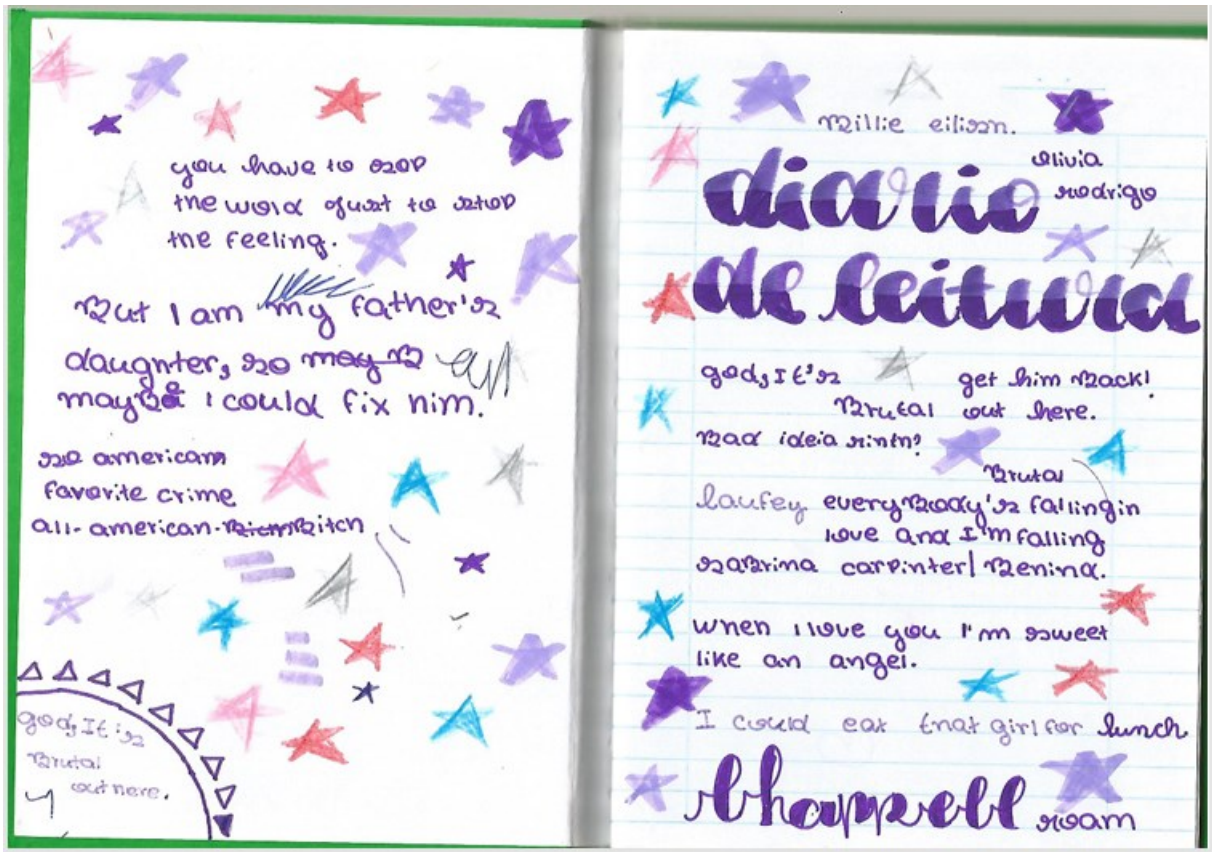 you have to sop
the word just to stop
the feeling.
But I am my father's
daughter, so may B
mayBe I could fix him.
so american
favorite crime
all-american-Bitch
god, It's
Brutal
out here.
Billie eilish.
olivia
rodrigo
diario
de leitura
god, It's get him Back!
Brutal out here.
Bad ideia right?
Brutal
laufey everyBody's falling in
love and I'm falling
saBrina carpinter/ Benina.
When I love you I'm sweet
like an angel.
I could eat that girl for lunch
Chappell roam